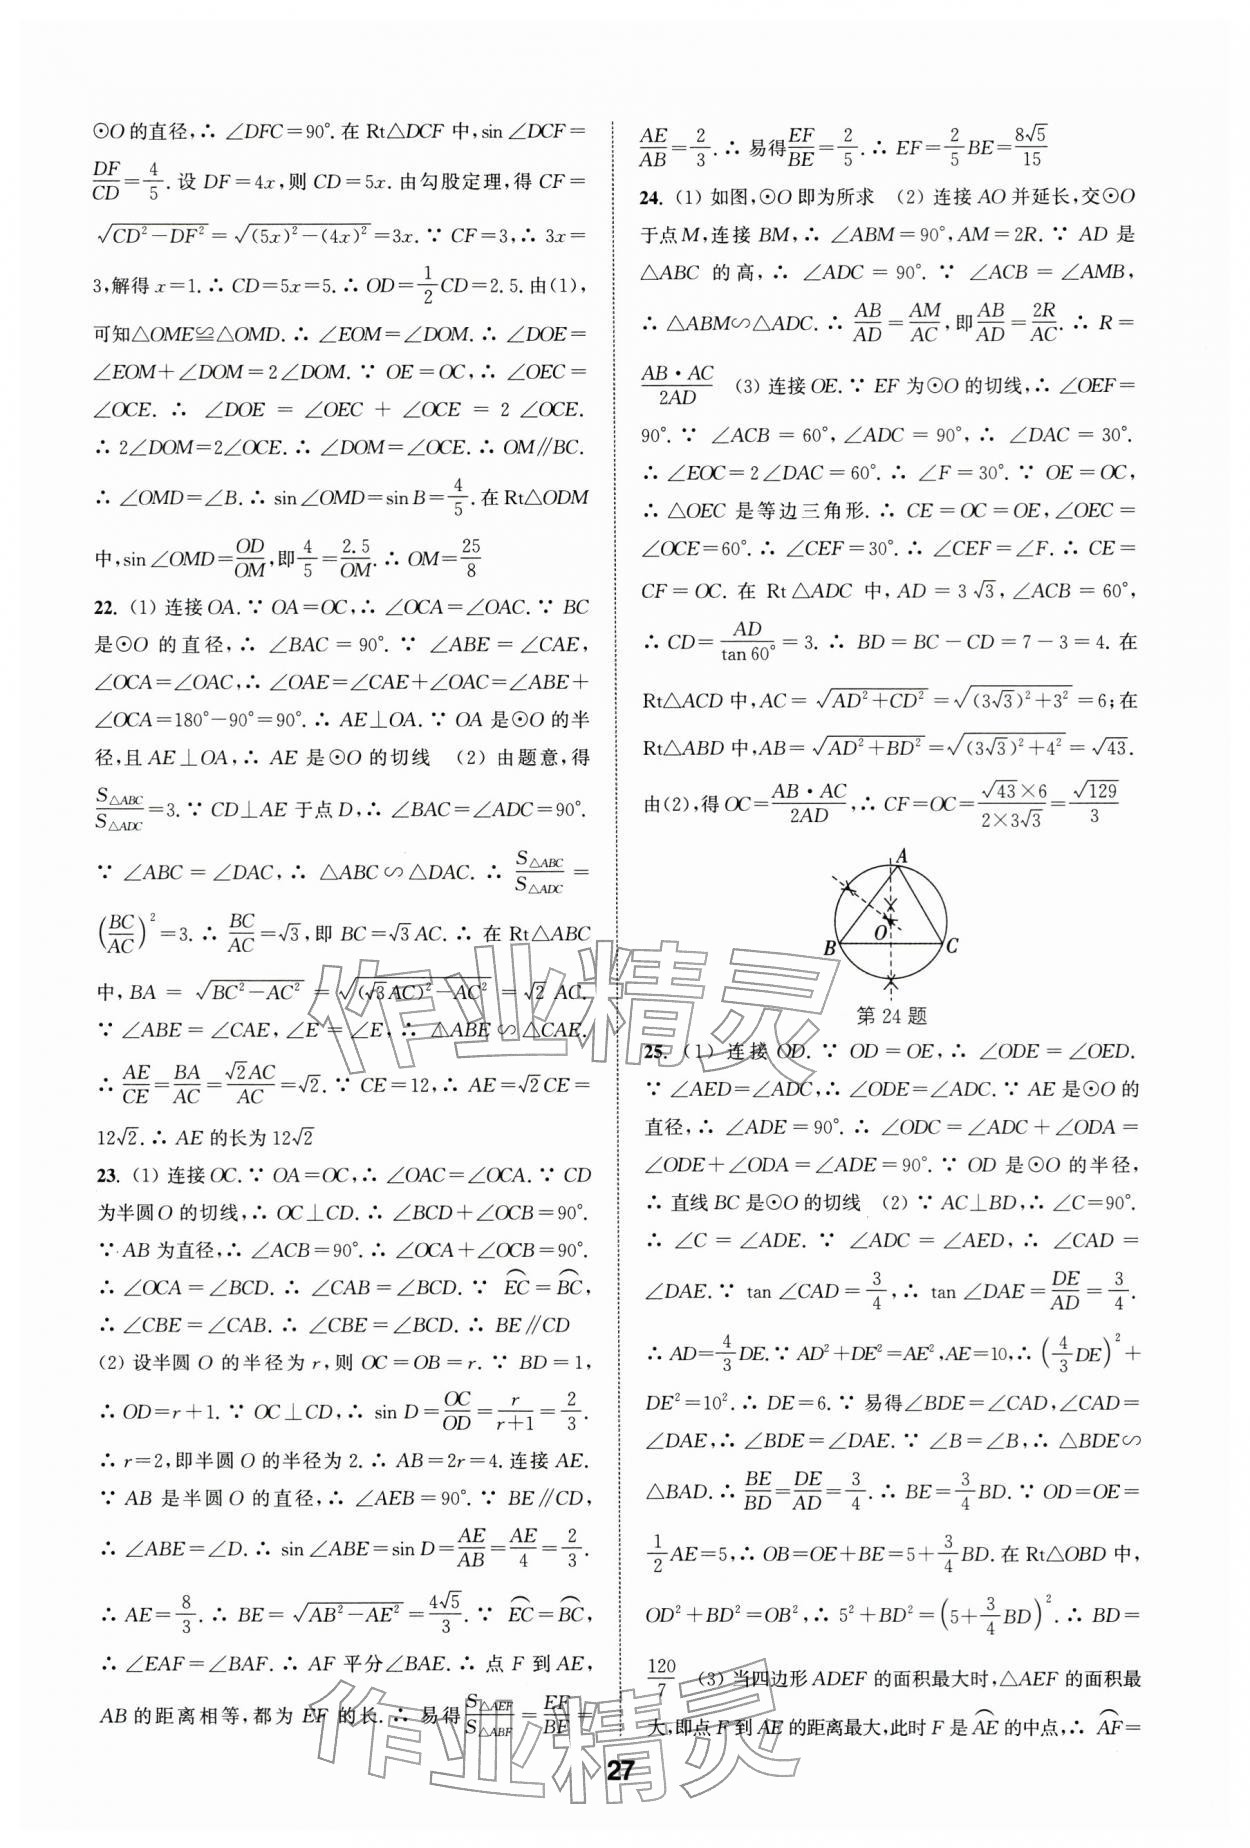 ⊙O的直径,∴ ∠DFC=90°.在 Rt△DCF 中,sin∠DCF=
DF/CD=4/5.设 DF=4x,则 CD=5x.由勾股定理,得 CF=
√(CD²-DF²)=√((5x)²-(4x)²)=3x.∵ CF=3,∴ 3x=
3,解得 x=1.∴ CD=5x=5.∴ OD=1/2CD=2.5.由(1),
可知△OME≌△OMD.∴ ∠EOM=∠DOM.∴ ∠DOE=
∠EOM+∠DOM=2∠DOM.∵ OE=OC,∴ ∠OEC=
∠OCE.∴ ∠DOE=∠OEC+∠OCE=2∠OCE.
∴ 2∠DOM=2∠OCE.∴ ∠DOM=∠OCE.∴ OM∥BC.
∴ ∠OMD=∠B.∴ sin∠OMD=sin B=4/5.在 Rt△ODM
中,sin∠OMD=OD/OM,即4/5=2.5/OM.∴ OM=25/8
22.(1) 连接 OA.∵ OA=OC,∴ ∠OCA=∠OAC.∵ BC
是⊙O 的直径,∴ ∠BAC=90°.∵ ∠ABE=∠CAE,
∠OCA=∠OAC,∴ ∠OAE=∠CAE+∠OAC=∠ABE+
∠OCA=180°-90°=90°.∴ AE⊥OA.∵ OA 是⊙O 的半
径,且 AE⊥OA,∴ AE 是⊙O 的切线 (2) 由题意,得
S△ABC/S△ADC=3.∵ CD⊥AE 于点 D,∴ ∠BAC=∠ADC=90°.
∵ ∠ABC=∠DAC,∴ △ABC∽△DAC.∴ S△ABC/S△ADC=
(BC/AC)²=3.∴ BC/AC=√3,即 BC=√3AC.∴ 在 Rt△ABC
中,BA=√(BC²-AC²)=√((√3AC)²-AC²)=√2 AC.
∵ ∠ABE=∠CAE,∠E=∠E,∴ △ABE∽△CAE.
∴ AE/CE=BA/AC=√2AC/AC=√2.∵ CE=12,∴ AE=√2CE=
12√2.∴ AE 的长为 12√2
23.(1) 连接 OC.∵ OA=OC,∴ ∠OAC=∠OCA.∵ CD
为半圆 O 的切线,∴ OC⊥CD.∴ ∠BCD+∠OCB=90°.
∵ AB 为直径,∴ ∠ACB=90°.∴ ∠OCA+∠OCB=90°.
∴ ∠OCA=∠BCD.∴ ∠CAB=∠BCD.∵ ⌒EC=⌒BC,
∴ ∠CBE=∠CAB.∴ ∠CBE=∠BCD.∴ BE∥CD
(2) 设半圆 O 的半径为 r,则 OC=OB=r.∵ BD=1,
∴ OD=r+1.∵ OC⊥CD,∴ sin D=OC/OD=r/(r+1)=2/3.
∴ r=2,即半圆 O 的半径为 2.∴ AB=2r=4.连接 AE.
∵ AB 是半圆 O 的直径,∴ ∠AEB=90°.∵ BE∥CD,
∴ ∠ABE=∠D.∴ sin∠ABE=sin D=AE/AB=AE/4=2/3.
∴ AE=8/3.∴ BE=√(AB²-AE²)=4√5/3.∵ ⌒EC=⌒BC,
∴ ∠EAF=∠BAF.∴ AF 平分∠BAE.∴ 点 F 到 AE,
AB 的距离相等,都为 EF 的长.∴ 易得S△AEF/S△ABF=EF/BF=
AE/AB=2/3.∴ 易得EF/BE=2/5.∴ EF=2/5BE=8√5/15
24.(1) 如图,⊙O 即为所求 (2) 连接 AO 并延长,交⊙O
于点 M,连接 BM,∴ ∠ABM=90°,AM=2R.∵ AD 是
△ABC 的高,∴ ∠ADC=90°.∵ ∠ACB=∠AMB,
∴ △ABM∽△ADC.∴ AB/AD=AM/AC,即AB/AD=2R/AC.∴ R=
AB·AC/2AD (3) 连接 OE.∵ EF 为⊙O 的切线,∴ ∠OEF=
90°.∵ ∠ACB=60°,∠ADC=90°,∴ ∠DAC=30°.
∴ ∠EOC=2∠DAC=60°.∴ ∠F=30°.∵ OE=OC,
∴ △OEC 是等边三角形.∴ CE=OC=OE,∠OEC=
∠OCE=60°.∴ ∠CEF=30°.∴ ∠CEF=∠F.∴ CE=
CF=OC.在 Rt△ADC 中,AD=3√3,∠ACB=60°,
∴ CD=AD/tan 60°=3.∴ BD=BC-CD=7-3=4.在
Rt△ACD 中,AC=√(AD²+CD²)=√((3√3)²+3²)=6;在
Rt△ABD 中,AB=√(AD²+BD²)=√((3√3)²+4²)=√43.
由(2),得 OC=AB·AC/2AD,∴ CF=OC=√43×6/(2×3√3)=√129/3
A
O
B
C
第 24 题
25.(1) 连接 OD.∵ OD=OE,∴ ∠ODE=∠OED.
∵ ∠AED=∠ADC,∴ ∠ODE=∠ADC.∵ AE 是⊙O 的
直径,∴ ∠ADE=90°.∴ ∠ODC=∠ADC+∠ODA=
∠ODE+∠ODA=∠ADE=90°.∵ OD 是⊙O 的半径,
∴ 直线 BC 是⊙O 的切线 (2) ∵ AC⊥BD,∴ ∠C=90°.
∴ ∠C=∠ADE.∵ ∠ADC=∠AED,∴ ∠CAD=
∠DAE.∵ tan∠CAD=3/4,∴ tan∠DAE=DE/AD=3/4.
∴ AD=4/3DE.∵ AD²+DE²=AE²,AE=10,∴ (4/3DE)²+
DE²=10².∴ DE=6.∵ 易得∠BDE=∠CAD,∠CAD=
∠DAE,∴ ∠BDE=∠DAE.∵ ∠B=∠B,∴ △BDE∽
△BAD.∴ BE/BD=DE/AD=3/4.∴ BE=3/4BD.∵ OD=OE=
1/2AE=5,∴ OB=OE+BE=5+3/4BD.在 Rt△OBD 中,
OD²+BD²=OB²,∴ 5²+BD²=(5+3/4BD)².∴ BD=
120/7 (3) 当四边形 ADEF 的面积最大时,△AEF 的面积最
大,即点 F 到 AE 的距离最大,此时 F 是⌒AE的中点,∴ ⌒AF=
27
作业精灵
作业精灵